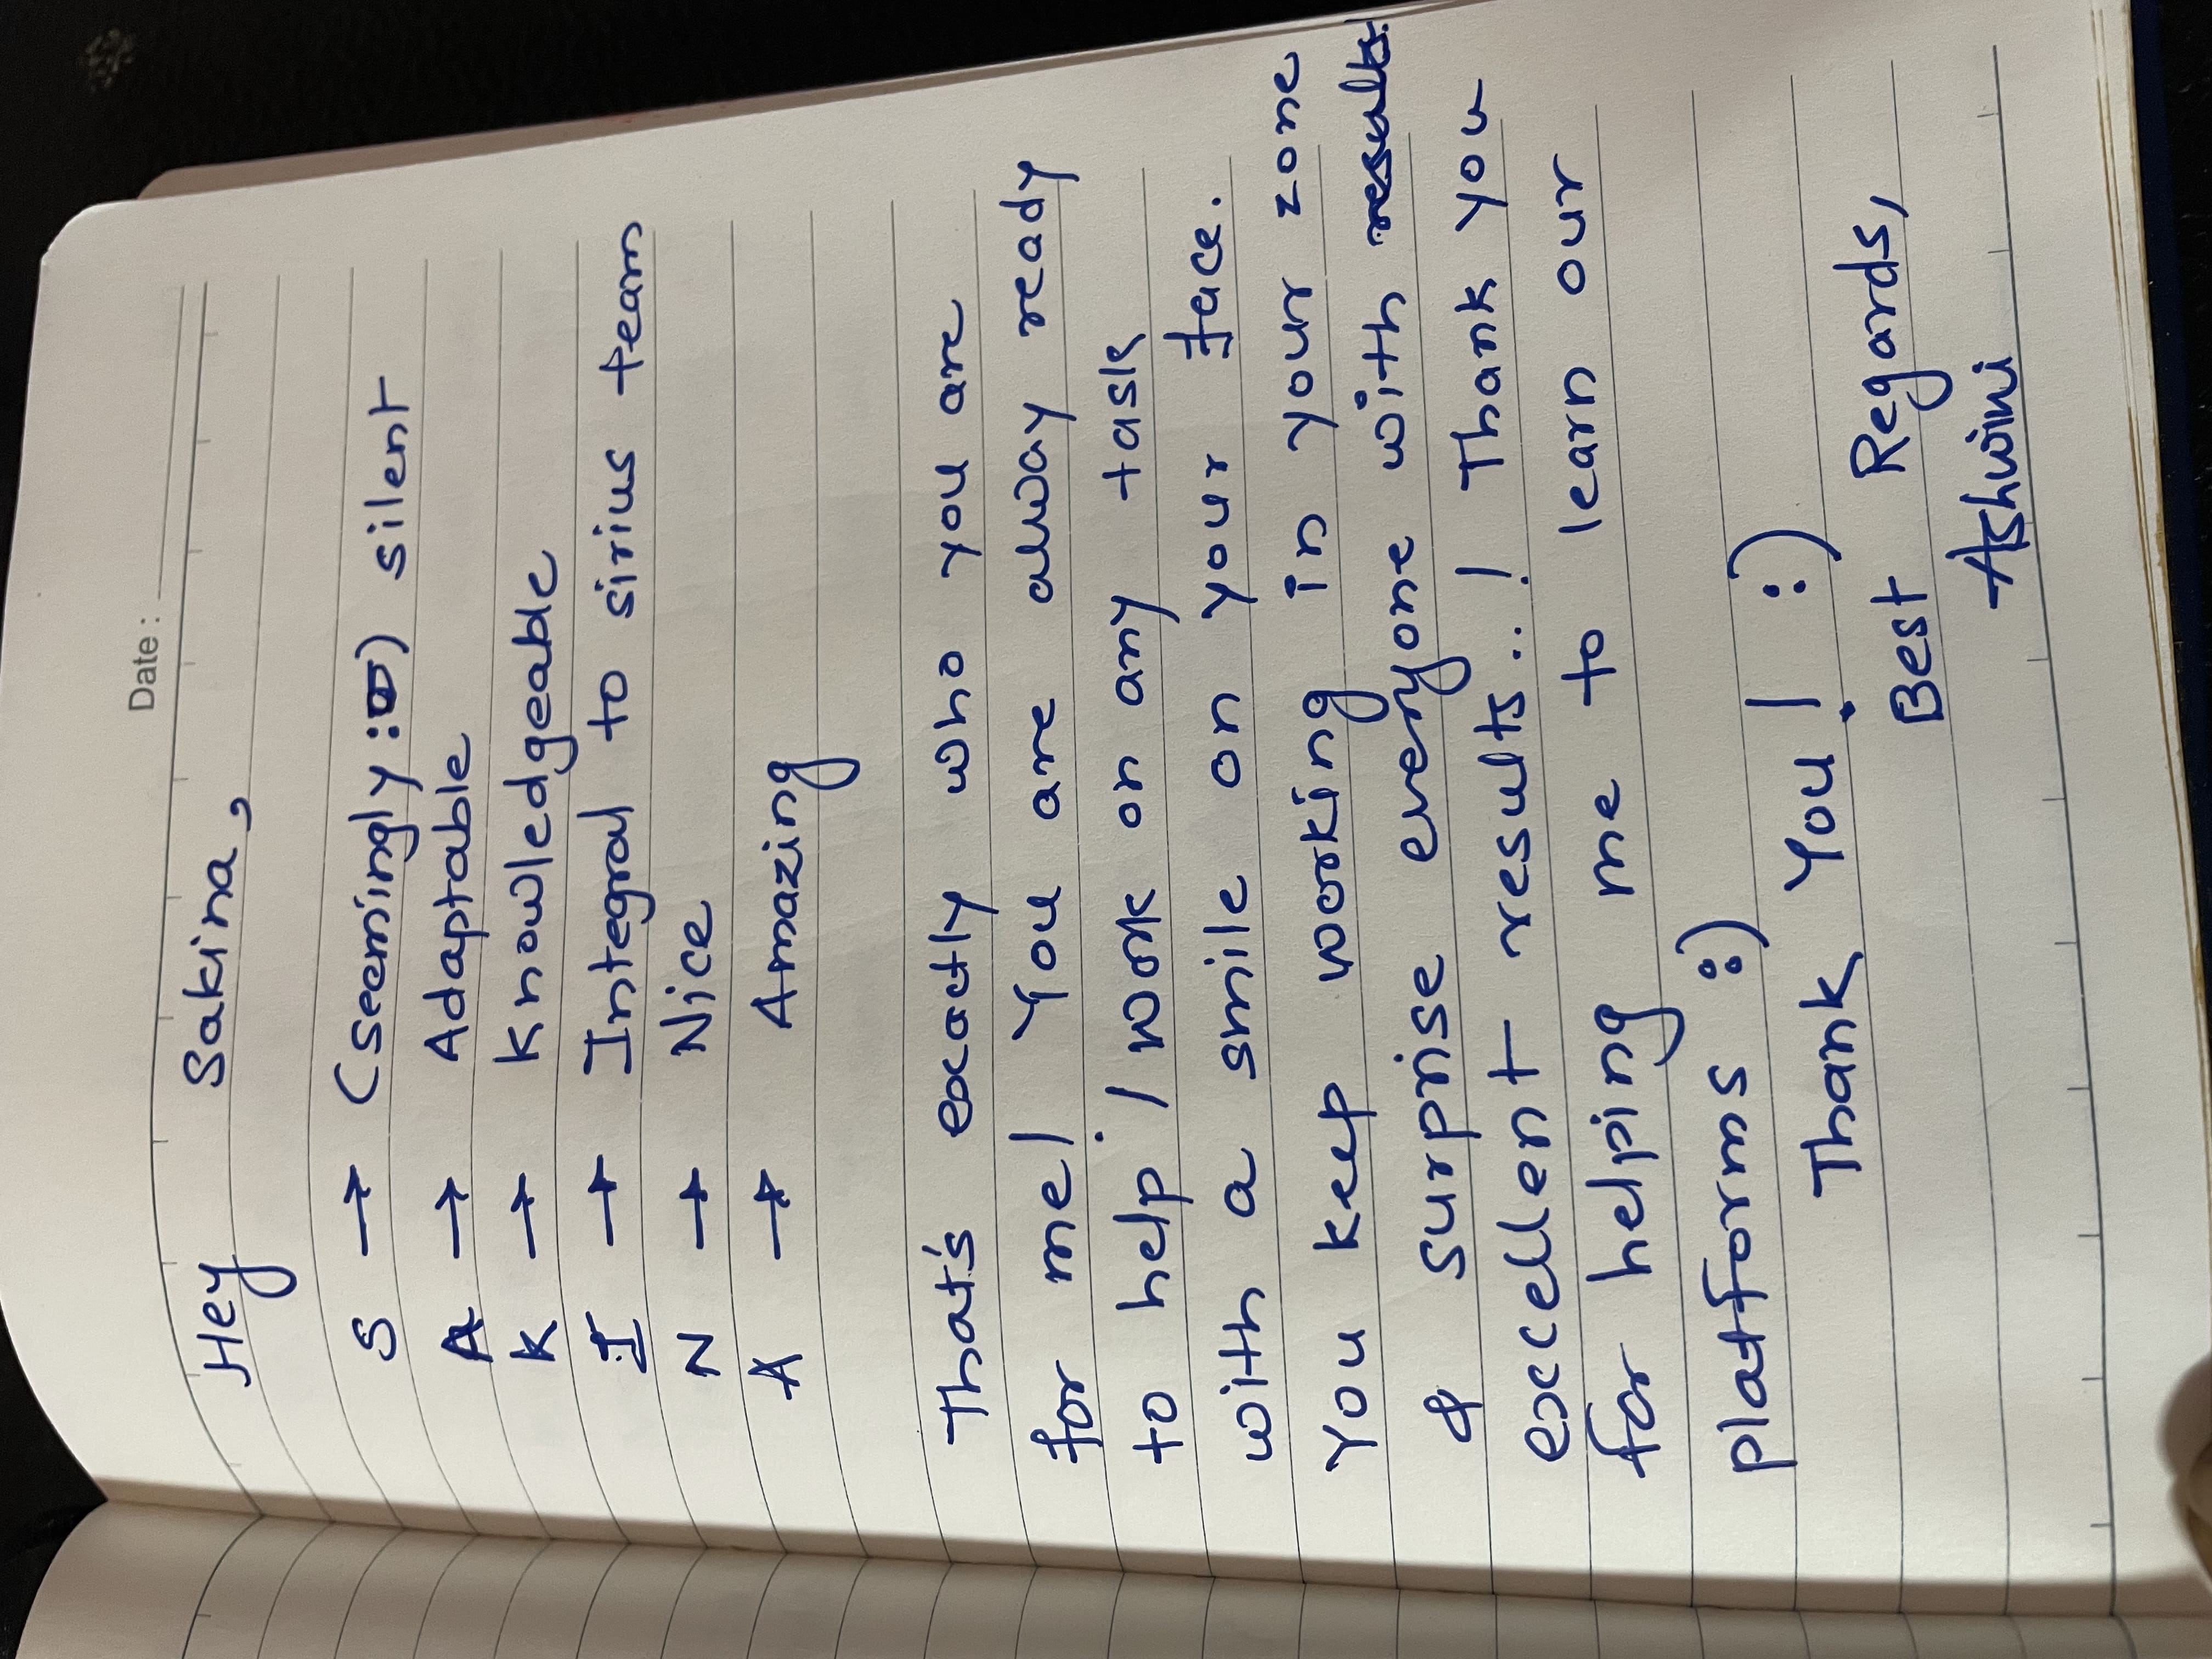 Date:
Hey Sakina,
S → (Seemingly :) silent
A → Adaptable
K → Knowledgeable
I → Integral to sirius team
N → Nice
A → Amazing
That's exactly who you are
for me! You are alway ready
to help / work on any task
with a smile on your face.
You keep working in your zone
& surprise everyone with results
excellent results..! Thank you
for helping me to learn our
platforms :)
Thank You! :)
Best Regards,
Ashwini